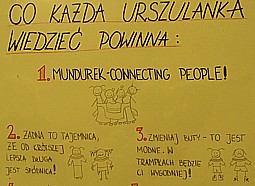 CO KAŻDA URSZULANKA
WIEDZIEĆ POWINNA:
1. MUNDUREK-CONNECTING PEOPLE!
2. ŻADNA TO TAJEMNICA,
ŻE OD KRÓTSZEJ
LEPSZA DŁUGA
JEST SPÓDNICA!
3. ZMIENIAJ BUTY - TO JEST
MODNE. W
TRAMPKACH BĘDZIE
CI WYGODNIEJ!